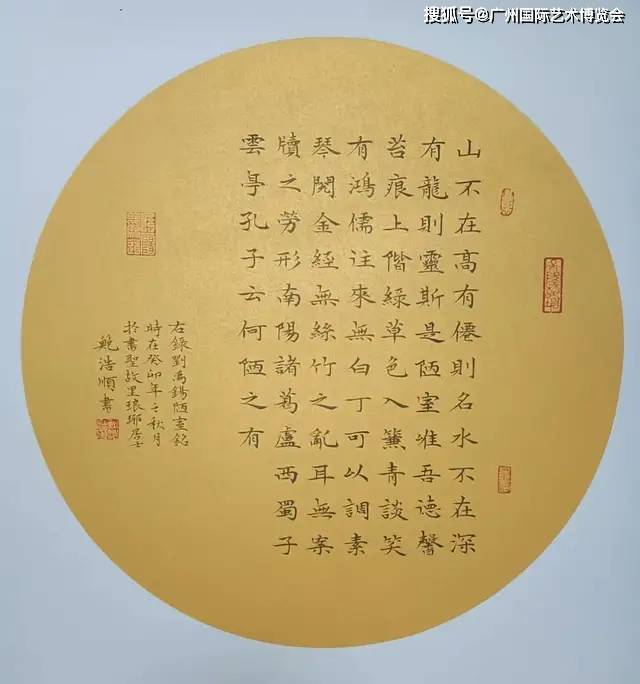 搜狐号@广州国际艺术博览会
山不在高有僊則名水不在深
有龍則靈斯是陋室惟吾德馨
苔痕上階綠草色入簾青談笑
有鴻儒往來無白丁可以調素
琴閱金經無絲竹之亂耳無案
牘之勞形南陽諸葛廬西蜀子
雲亭孔子云何陋之有
右錄劉禹錫陋室銘
時在癸卯年之秋月
於書聖故里琅琊居士
浩順書